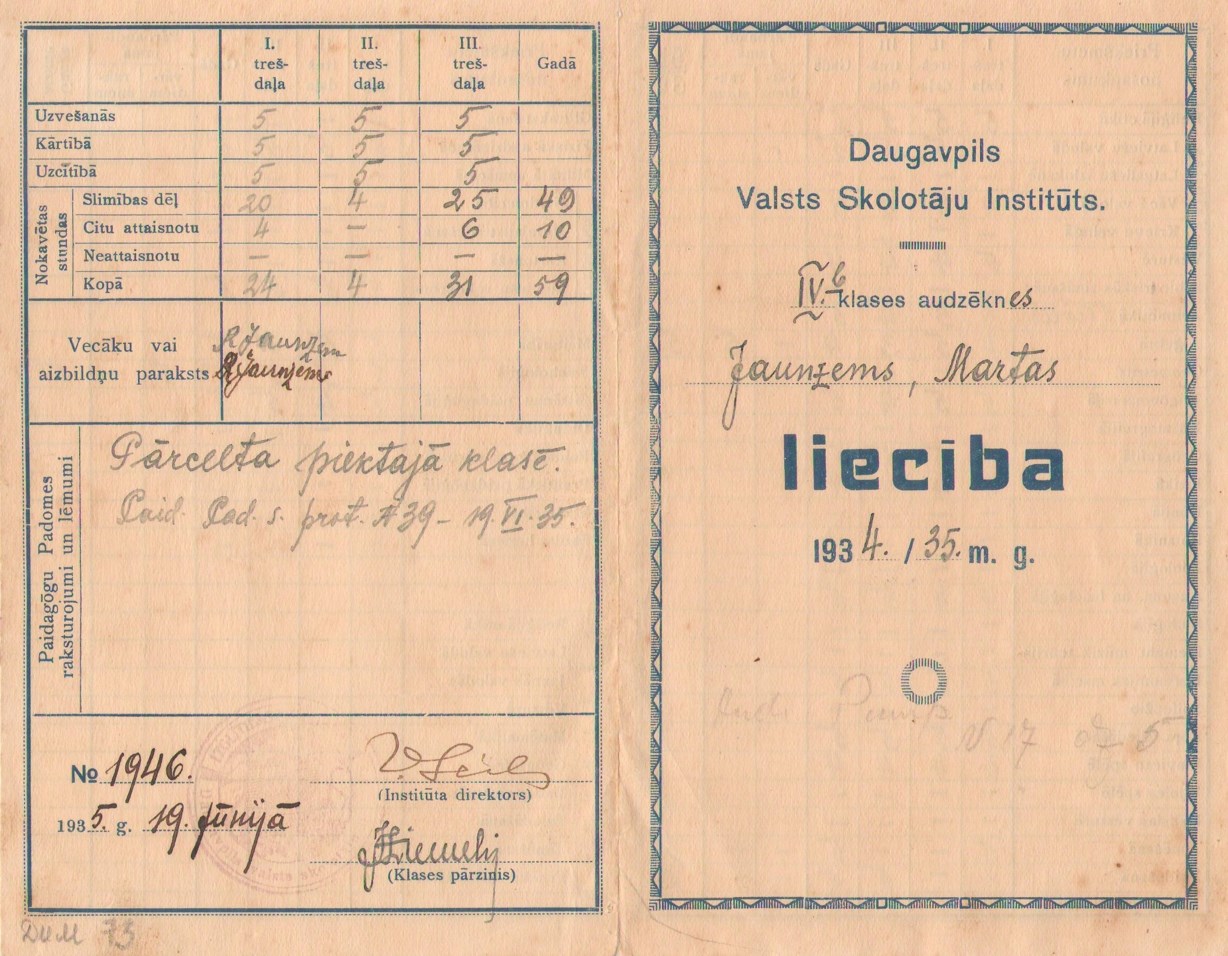 I. treš-daļa II. treš-daļa III. treš-daļa Gadā
Uzvešanās 5 5 5
Kārtībā 5 5 5
Uzcītībā 5 5 5
Nokavētas stundas
Slimības dēļ 20 4 25 49
Citu attaisnotu 4 — 6 10
Neattaisnotu — — — —
Kopā 24 4 31 59
Vecāku vai
aizbildņu paraksts
Paidagōgu Padomes
raksturojumi un lēmumi
Pārcelta piektajā klasē.
Paid. Pad. s. prot. № 39 – 19.VI.35.
№ 1946.
(Institūta direktors)
1935. g. 19. jūnijā
(Klases pārzinis)
ДИМ 73
Daugavpils
Valsts Skolotāju Institūts.
IV.b klases audzēknes
Jaunzems, Martas
liecība
1934. / 35. m. g.